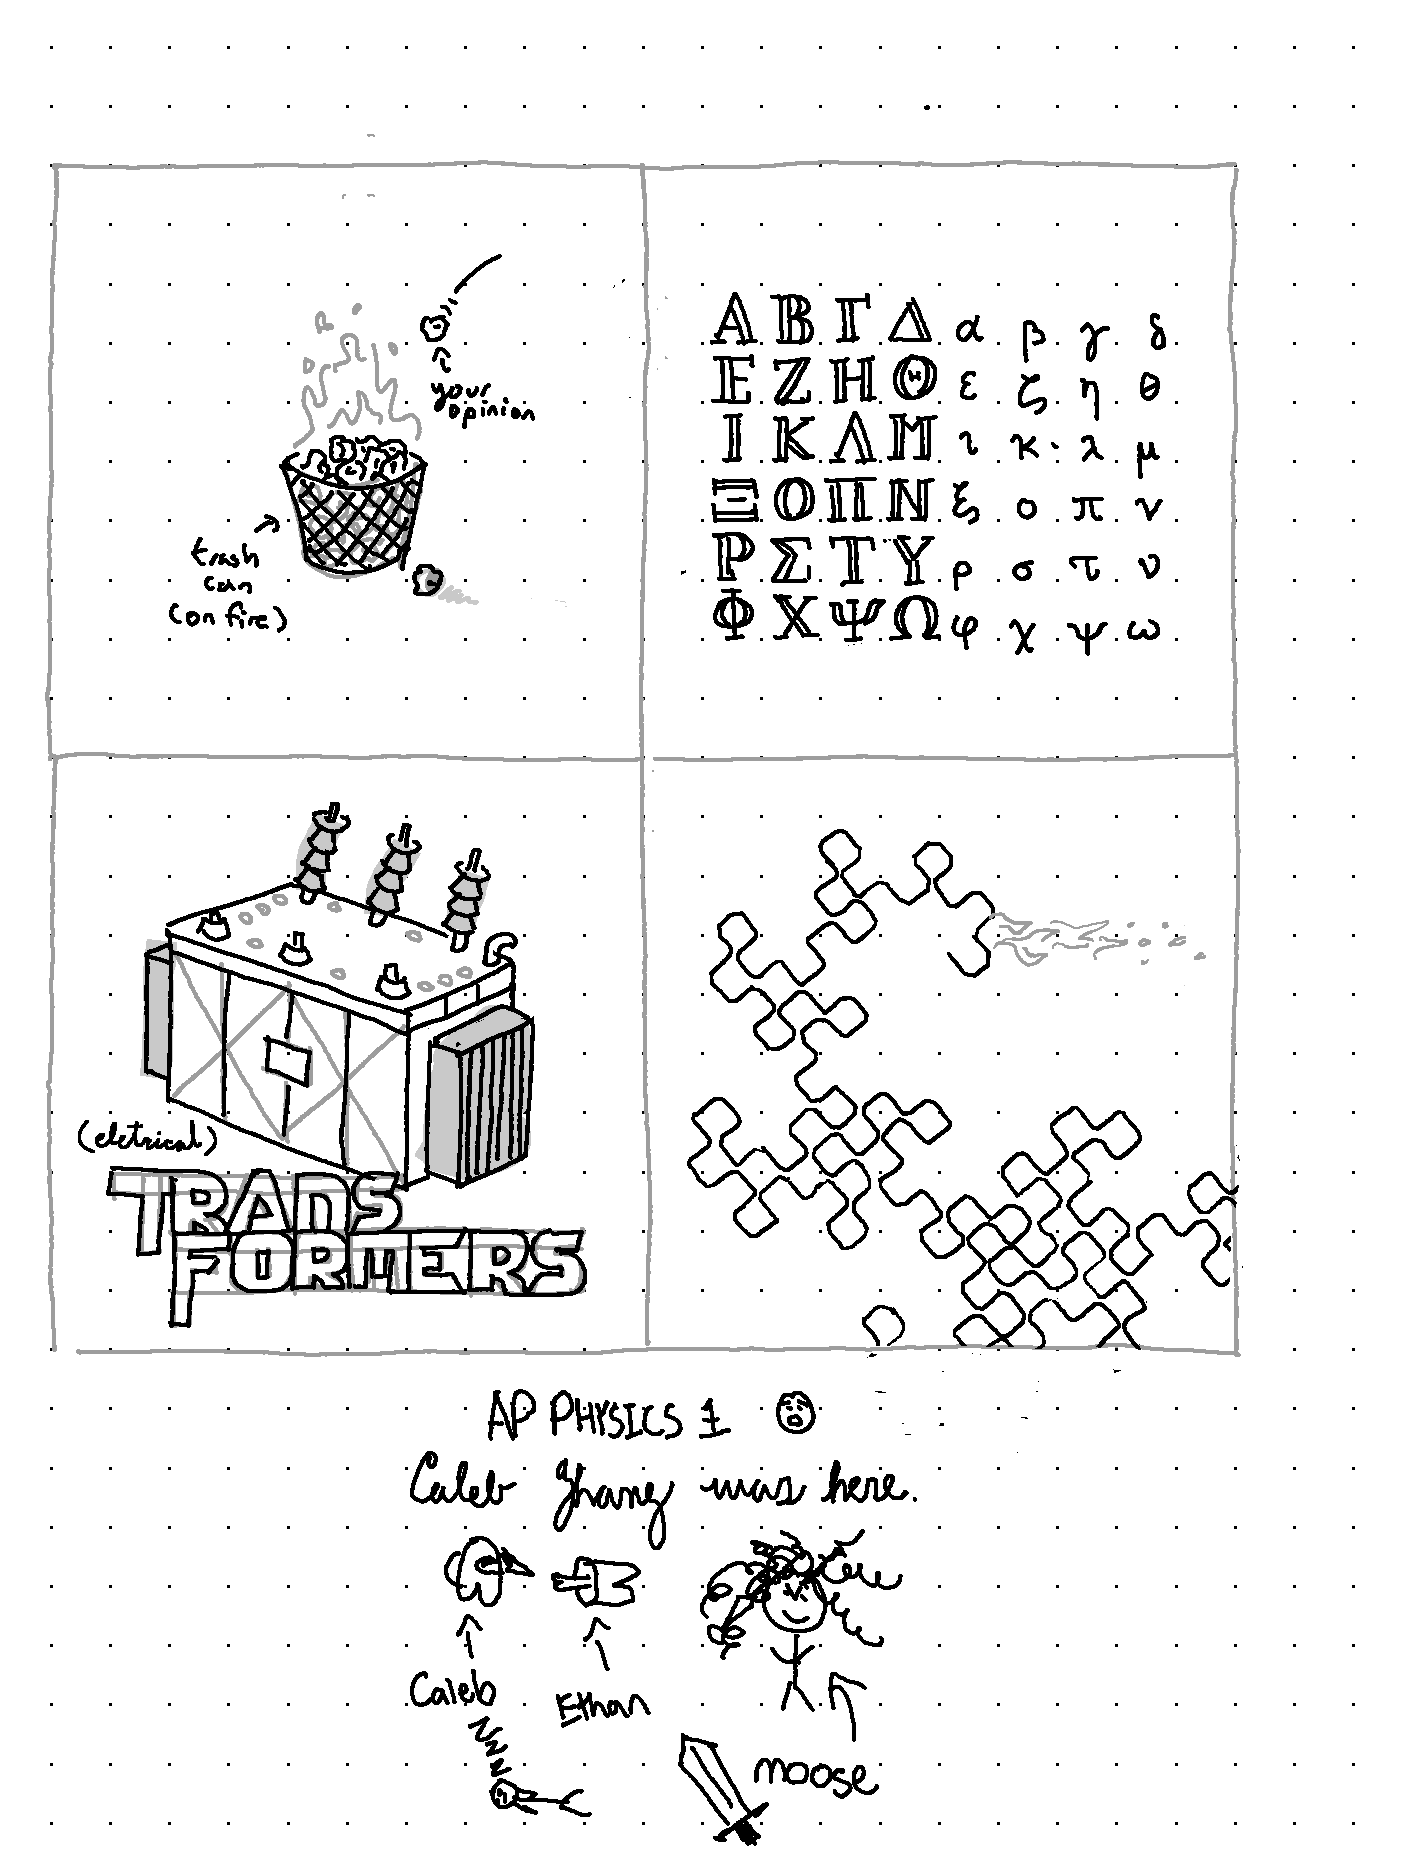 your
opinion
trash
can
(on fire)
Α Β Γ Δ α β γ δ
Ε Ζ Η Θ ε ζ η θ
Ι Κ Λ Μ ι κ λ μ
Ξ Ο Π Ν ξ ο π ν
Ρ Σ Τ Υ ρ σ τ υ
Φ Χ Ψ Ω φ χ ψ ω
(eletrical)
TRANS
FORMERS
AP PHYSICS 1
Caleb Zhang was here.
Caleb
Ethan
moose
ZZZZ